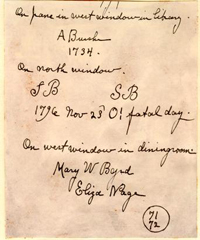 On pane in west window in library.
A Burch
1734.
On north window.
S B S B
1796 Nov 23 O! fatal day
On west window in diningroom
Mary W Byrd
Eliza Page
71
72